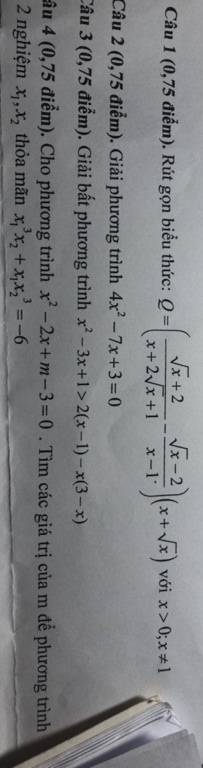 Câu 1 (0,75 điểm). Rút gọn biểu thức: Q = ( (√x + 2)/(x + 2√x + 1) − (√x − 2)/(x − 1) )(x + √x) với x > 0; x ≠ 1
Câu 2 (0,75 điểm). Giải phương trình 4x² − 7x + 3 = 0
Câu 3 (0,75 điểm). Giải bất phương trình x² − 3x + 1 > 2(x − 1) − x(3 − x)
âu 4 (0,75 điểm). Cho phương trình x² − 2x + m − 3 = 0 . Tìm các giá trị của m để phương trình
2 nghiệm x₁, x₂ thỏa mãn x₁³x₂ + x₁x₂³ = −6